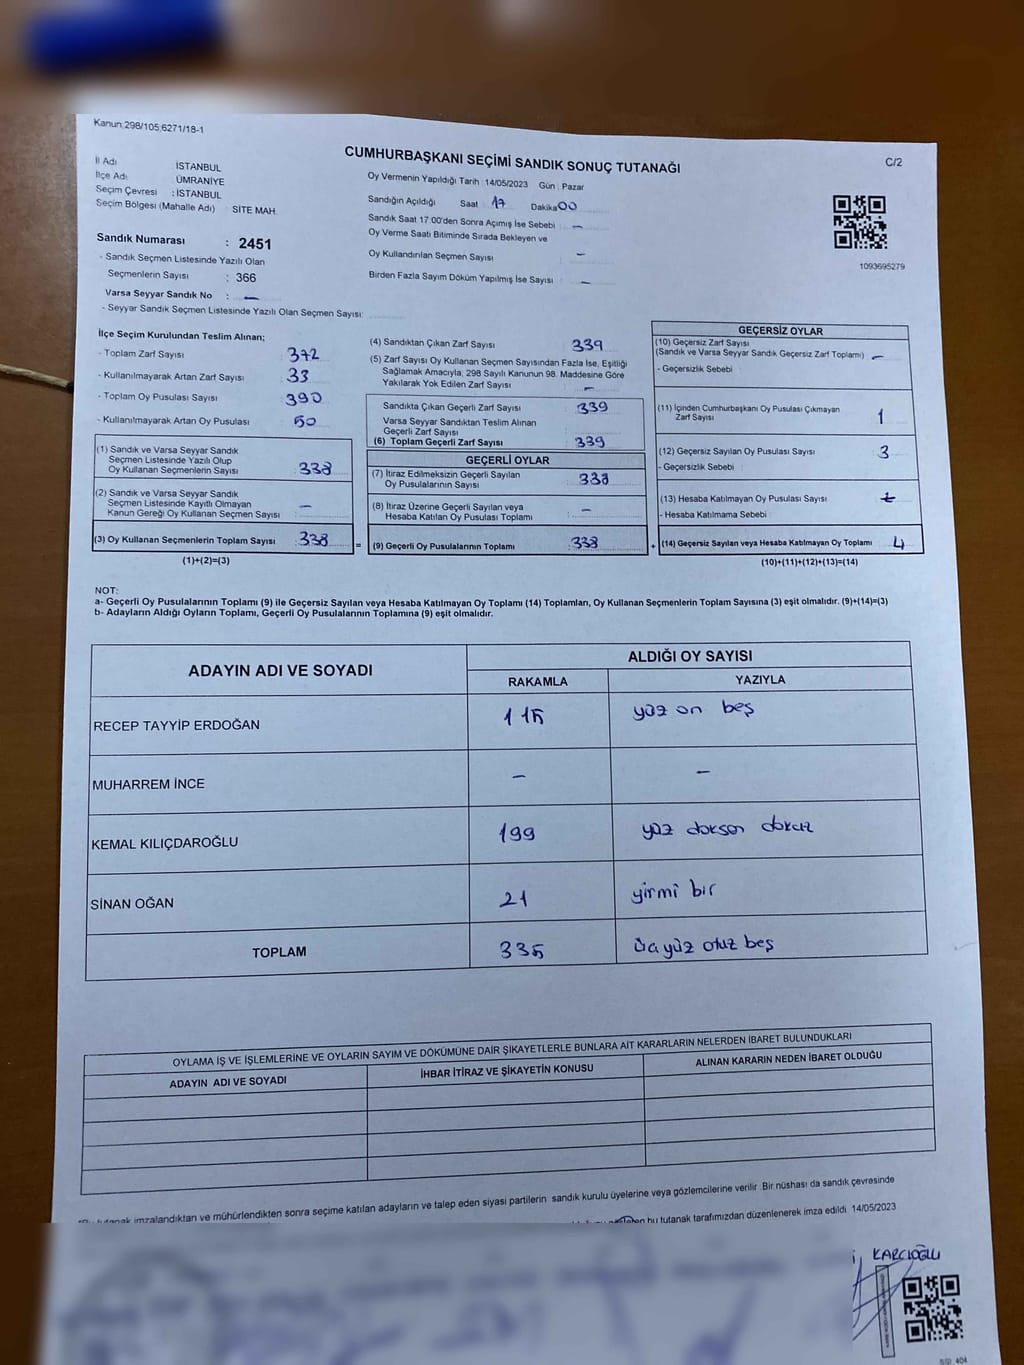 Kanun:298/105;6271/18-1
CUMHURBAŞKANI SEÇİMİ SANDIK SONUÇ TUTANAĞI
C/2
İl Adı İSTANBUL
İlçe Adı ÜMRANİYE
Seçim Çevresi : İSTANBUL
Seçim Bölgesi (Mahalle Adı) : SİTE MAH.
Oy Vermenin Yapıldığı Tarih : 14/05/2023 Gün : Pazar
Sandığın Açıldığı Saat 17 Dakika 00
Sandık Saat 17:00'den Sonra Açımış İse Sebebi : –
Oy Verme Saati Bitiminde Sırada Bekleyen ve
Oy Kullandırılan Seçmen Sayısı : –
Birden Fazla Sayım Döküm Yapılmış İse Sayısı : –
1093695279
Sandık Numarası : 2451
- Sandık Seçmen Listesinde Yazılı Olan
Seçmenlerin Sayısı : 366
Varsa Seyyar Sandık No : –
- Seyyar Sandık Seçmen Listesinde Yazılı Olan Seçmen Sayısı:
İlçe Seçim Kurulundan Teslim Alınan;
- Toplam Zarf Sayısı : 372
- Kullanılmayarak Artan Zarf Sayısı : 33
- Toplam Oy Pusulası Sayısı : 390
- Kullanılmayarak Artan Oy Pusulası : 50
(1) Sandık ve Varsa Seyyar Sandık
Seçmen Listesinde Yazılı Olup
Oy Kullanan Seçmenlerin Sayısı : 338
(2) Sandık ve Varsa Seyyar Sandık
Seçmen Listesinde Kayıtlı Olmayan
Kanun Gereği Oy Kullanan Seçmen Sayısı : –
(3) Oy Kullanan Seçmenlerin Toplam Sayısı : 338
(1)+(2)=(3)
(4) Sandıktan Çıkan Zarf Sayısı : 339
(5) Zarf Sayısı Oy Kullanan Seçmen Sayısından Fazla İse, Eşitliği
Sağlamak Amacıyla, 298 Sayılı Kanunun 98. Maddesine Göre
Yakılarak Yok Edilen Zarf Sayısı : –
Sandıkta Çıkan Geçerli Zarf Sayısı : 339
Varsa Seyyar Sandıktan Teslim Alınan
Geçerli Zarf Sayısı :
(6) Toplam Geçerli Zarf Sayısı : 339
GEÇERLİ OYLAR
(7) İtiraz Edilmeksizin Geçerli Sayılan
Oy Pusulalarının Sayısı : 338
(8) İtiraz Üzerine Geçerli Sayılan veya
Hesaba Katılan Oy Pusulası Toplamı : –
= (9) Geçerli Oy Pusulalarının Toplamı : 338
GEÇERSİZ OYLAR
(10) Geçersiz Zarf Sayısı
(Sandık ve Varsa Seyyar Sandık Geçersiz Zarf Toplamı) : –
- Geçersizlik Sebebi :
(11) İçinden Cumhurbaşkanı Oy Pusulası Çıkmayan
Zarf Sayısı : 1
(12) Geçersiz Sayılan Oy Pusulası Sayısı : 3
- Geçersizlik Sebebi :
(13) Hesaba Katılmayan Oy Pusulası Sayısı :
- Hesaba Katılmama Sebebi :
+ (14) Geçersiz Sayılan veya Hesaba Katılmayan Oy Toplamı : 4
(10)+(11)+(12)+(13)=(14)
NOT:
a- Geçerli Oy Pusulalarının Toplamı (9) ile Geçersiz Sayılan veya Hesaba Katılmayan Oy Toplamı (14) Toplamları, Oy Kullanan Seçmenlerin Toplam Sayısına (3) eşit olmalıdır. (9)+(14)=(3)
b- Adayların Aldığı Oyların Toplamı, Geçerli Oy Pusulalarının Toplamına (9) eşit olmalıdır.
ADAYIN ADI VE SOYADI
ALDIĞI OY SAYISI
RAKAMLA YAZIYLA
RECEP TAYYİP ERDOĞAN 115 yüz on beş
MUHARREM İNCE – –
KEMAL KILIÇDAROĞLU 199 yüz doksan dokuz
SİNAN OĞAN 21 yirmi bir
TOPLAM 335 üçyüz otuz beş
OYLAMA İŞ VE İŞLEMLERİNE VE OYLARIN SAYIM VE DÖKÜMÜNE DAİR ŞİKAYETLERLE BUNLARA AİT KARARLARIN NELERDEN İBARET BULUNDUKLARI
ADAYIN ADI VE SOYADI İHBAR İTİRAZ VE ŞİKAYETİN KONUSU ALINAN KARARIN NEDEN İBARET OLDUĞU
tutanak imzalandıktan ve mühürlendikten sonra seçime katılan adayların ve talep eden siyasi partilerin sandık kurulu üyelerine veya gözlemcilerine verilir. Bir nüshası da sandık çevresinde
bu tutanak tarafımızdan düzenlenerek imza edildi. 14/05/2023
KARCIOĞLU
404